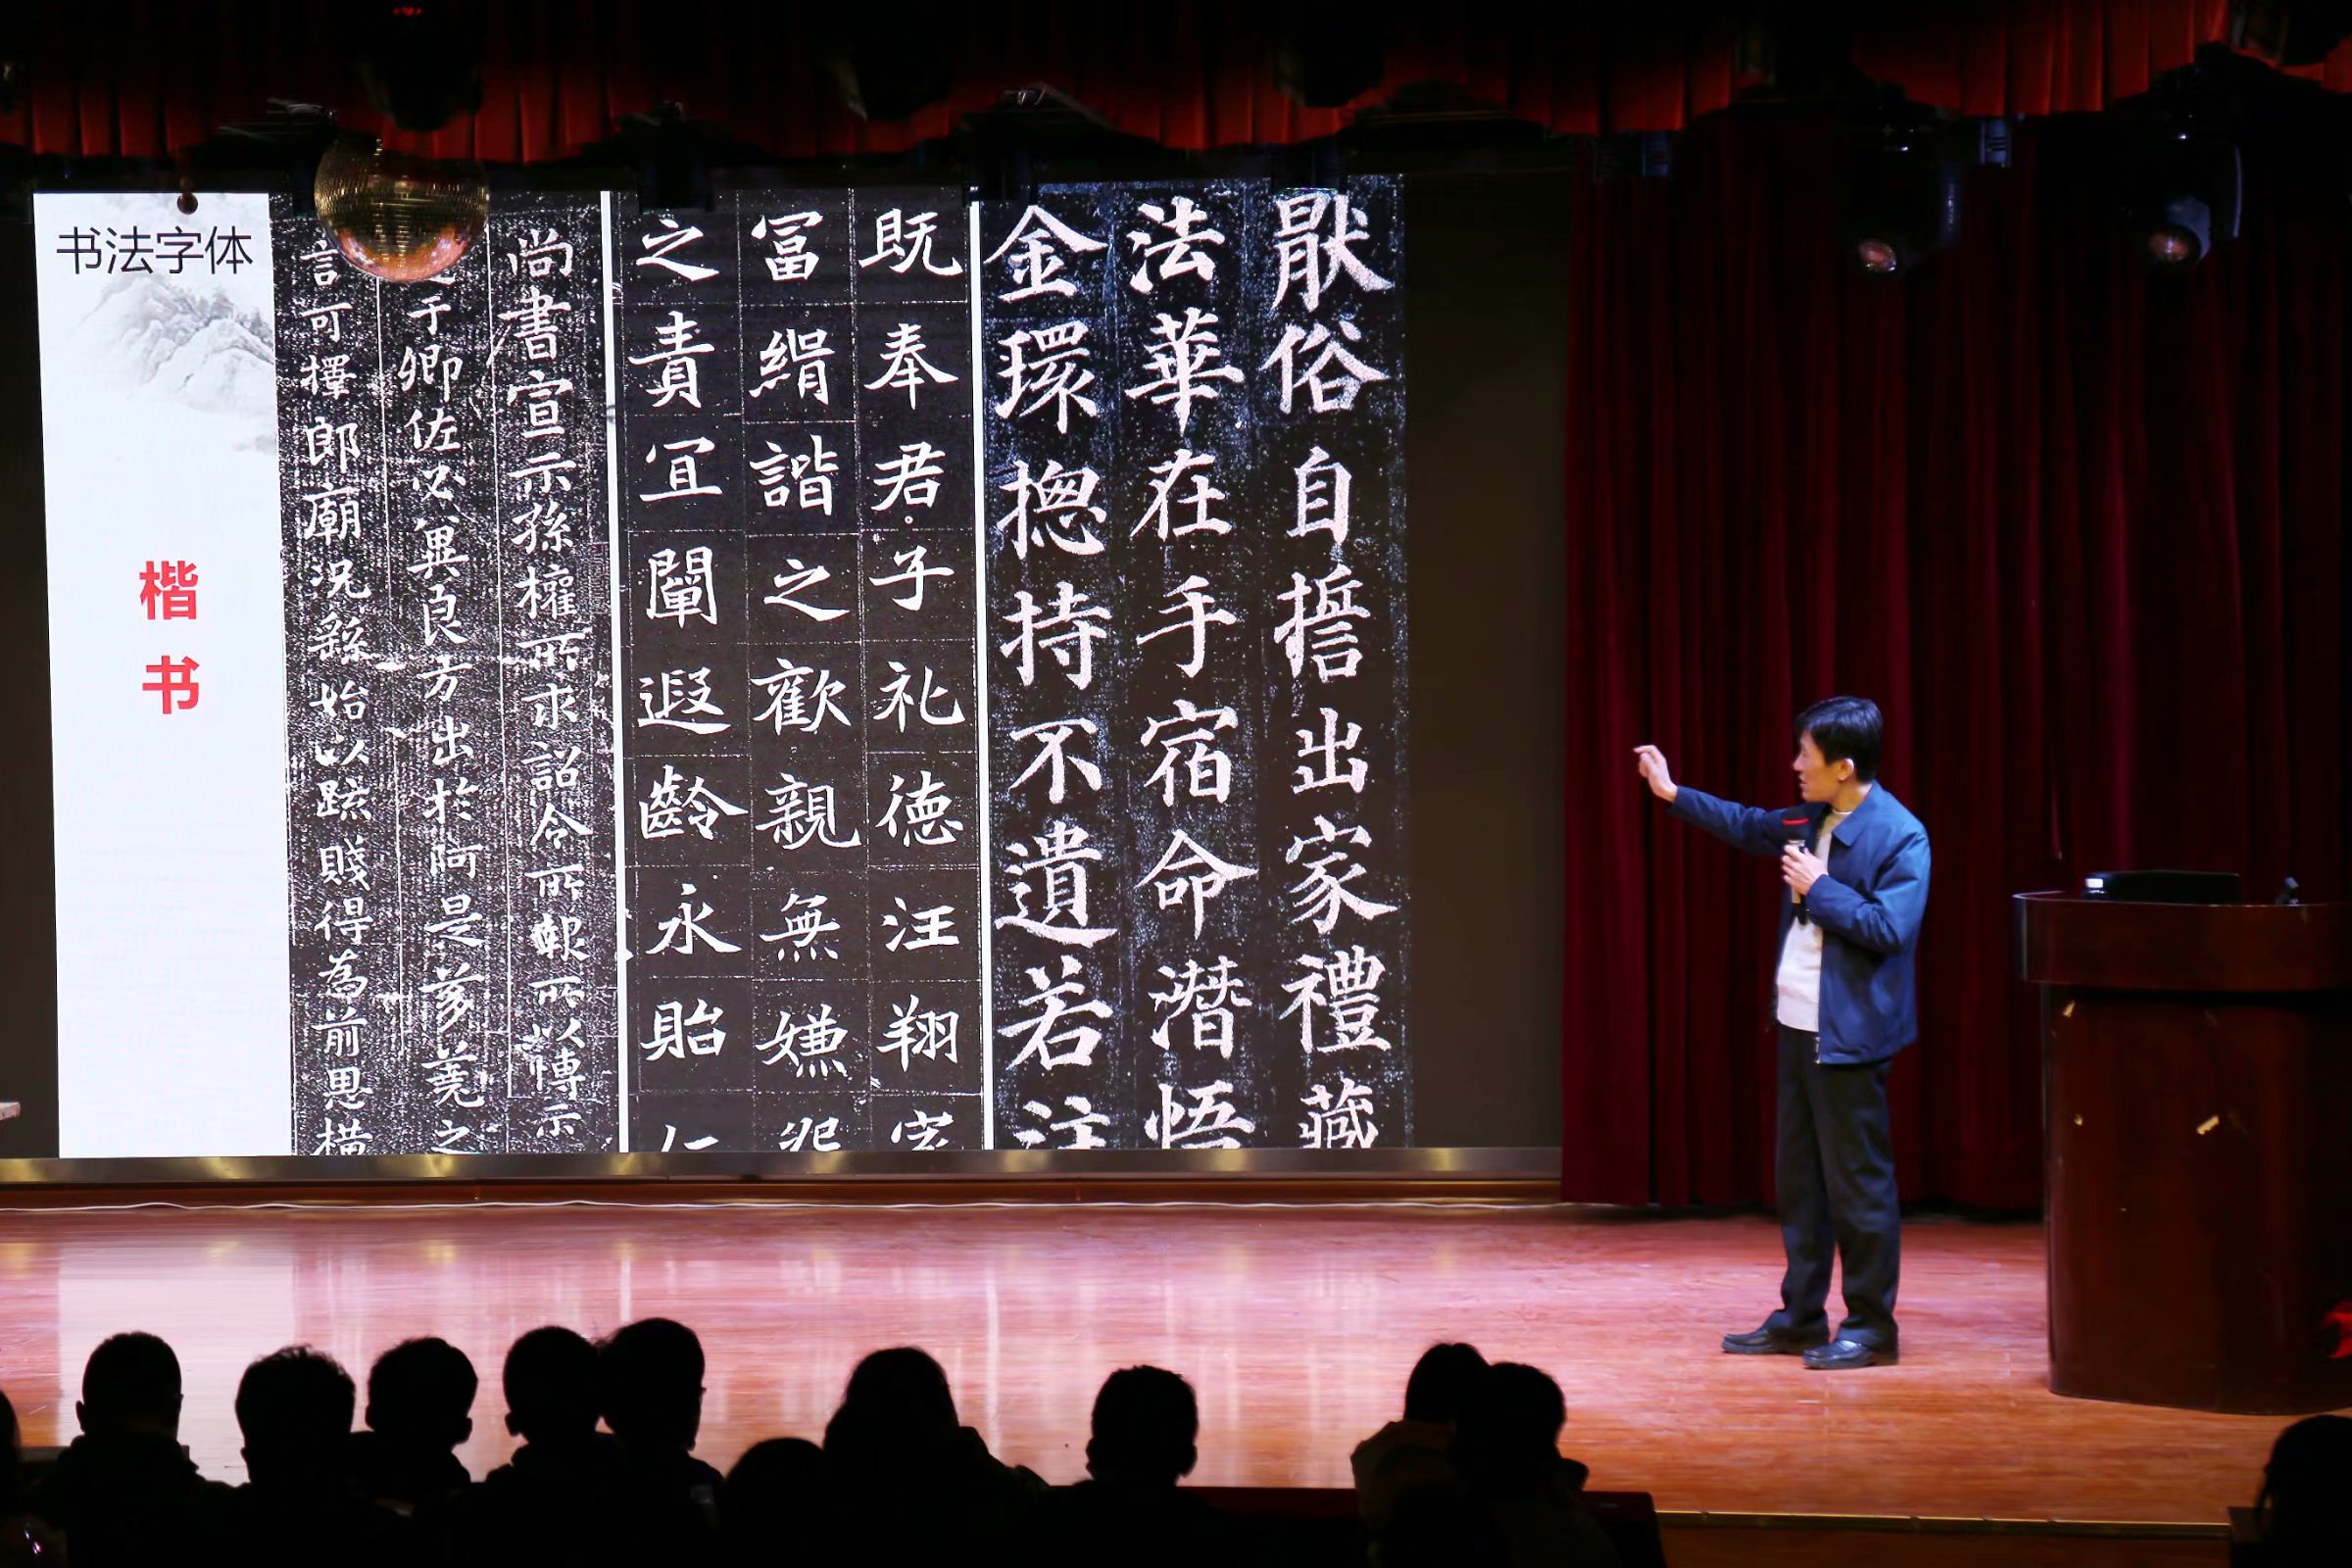 书法字体
楷书
尚書宣示孫權所求詔令所報所以博示
于卿佐必冀良方出於阿是芻蕘之
言可擇郎廟況繇始以疏賤得為前恩橫
既奉君子礼德汪翔
冨緝諧之歡親無嫌
之責冝闡遐齡永貽
猒俗自誓出家禮藏
法華在手宿命潛悟
金環捴持不遺若注